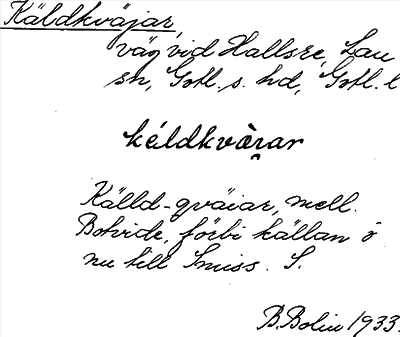 Käldkväjar,
väg vid Hallsre, Lau
sn, Gotl. s. hd, Gotl. l
kéldkvàrar
Källd-qväiar, mell.
Botvide, förbi källan ö
nu till Smiss. S.
B. Bolin 1933.